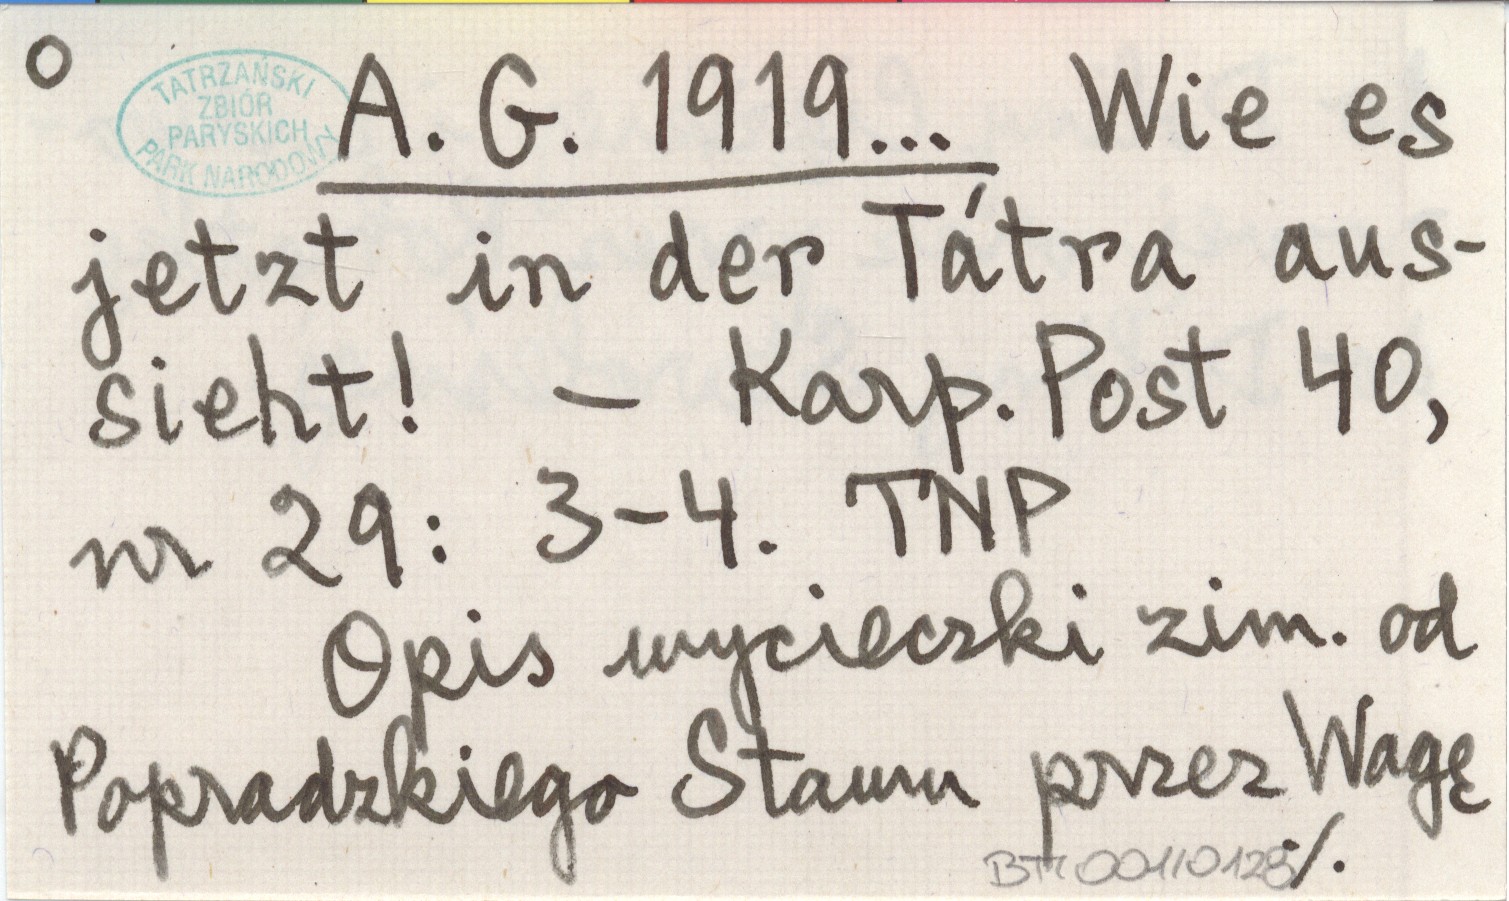 o
TATRZAŃSKI
ZBIÓR
PARYSKICH
PARK NARODOWY
A. G. 1919... Wie es
jetzt in der Tátra aus-
sieht! – Karp. Post 40,
nr 29: 3-4. TNP
Opis wycieczki zim. od
Popradzkiego Stawu przez Wagę
./.